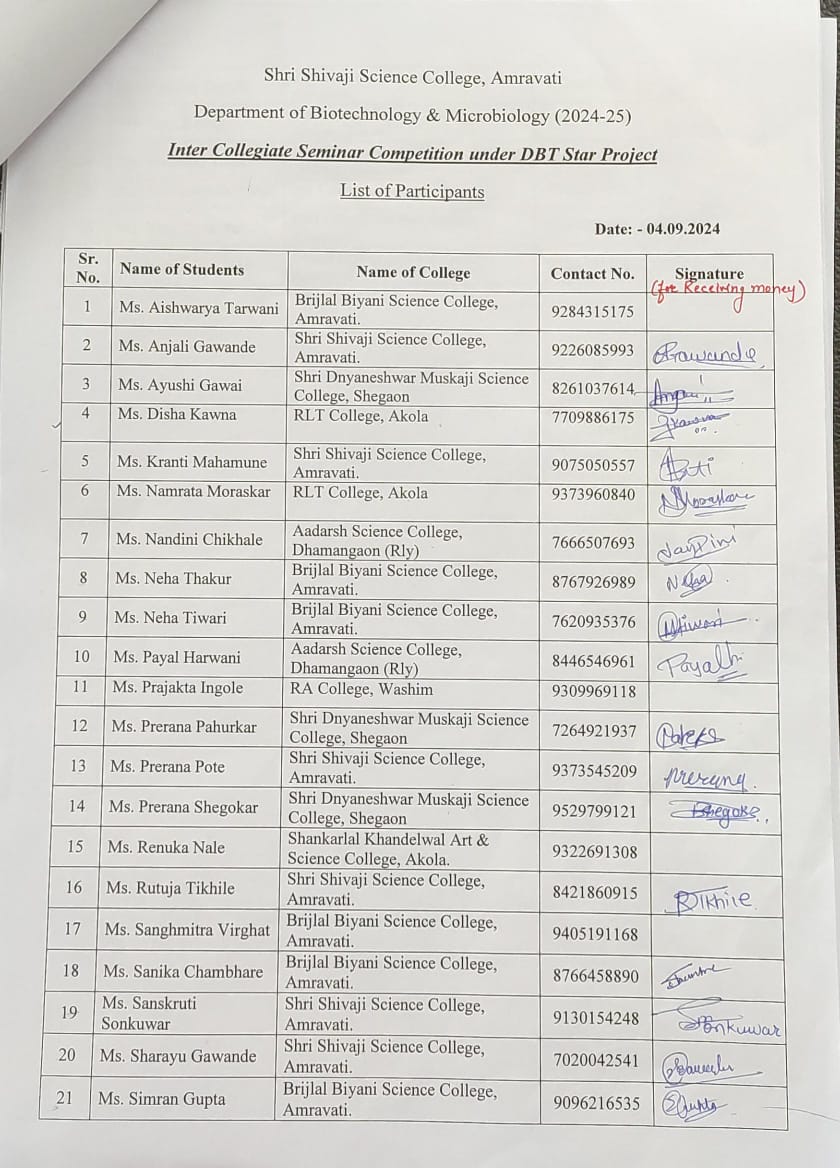 Shri Shivaji Science College, Amravati
Department of Biotechnology & Microbiology (2024-25)
Inter Collegiate Seminar Competition under DBT Star Project
List of Participants
Date: - 04.09.2024
Sr. No. Name of Students Name of College Contact No. Signature
(for Receiving money)
1 Ms. Aishwarya Tarwani Brijlal Biyani Science College, Amravati. 9284315175
2 Ms. Anjali Gawande Shri Shivaji Science College, Amravati. 9226085993 Gawande
3 Ms. Ayushi Gawai Shri Dnyaneshwar Muskaji Science College, Shegaon 8261037614
4 Ms. Disha Kawna RLT College, Akola 7709886175
5 Ms. Kranti Mahamune Shri Shivaji Science College, Amravati. 9075050557
6 Ms. Namrata Moraskar RLT College, Akola 9373960840
7 Ms. Nandini Chikhale Aadarsh Science College, Dhamangaon (Rly) 7666507693
8 Ms. Neha Thakur Brijlal Biyani Science College, Amravati. 8767926989 Neha
9 Ms. Neha Tiwari Brijlal Biyani Science College, Amravati. 7620935376
10 Ms. Payal Harwani Aadarsh Science College, Dhamangaon (Rly) 8446546961
11 Ms. Prajakta Ingole RA College, Washim 9309969118
12 Ms. Prerana Pahurkar Shri Dnyaneshwar Muskaji Science College, Shegaon 7264921937
13 Ms. Prerana Pote Shri Shivaji Science College, Amravati. 9373545209
14 Ms. Prerana Shegokar Shri Dnyaneshwar Muskaji Science College, Shegaon 9529799121
15 Ms. Renuka Nale Shankarlal Khandelwal Art & Science College, Akola. 9322691308
16 Ms. Rutuja Tikhile Shri Shivaji Science College, Amravati. 8421860915 RTikhile
17 Ms. Sanghmitra Virghat Brijlal Biyani Science College, Amravati. 9405191168
18 Ms. Sanika Chambhare Brijlal Biyani Science College, Amravati. 8766458890
19 Ms. Sanskruti Sonkuwar Shri Shivaji Science College, Amravati. 9130154248 Sonkuwar
20 Ms. Sharayu Gawande Shri Shivaji Science College, Amravati. 7020042541
21 Ms. Simran Gupta Brijlal Biyani Science College, Amravati. 9096216535 SGupta